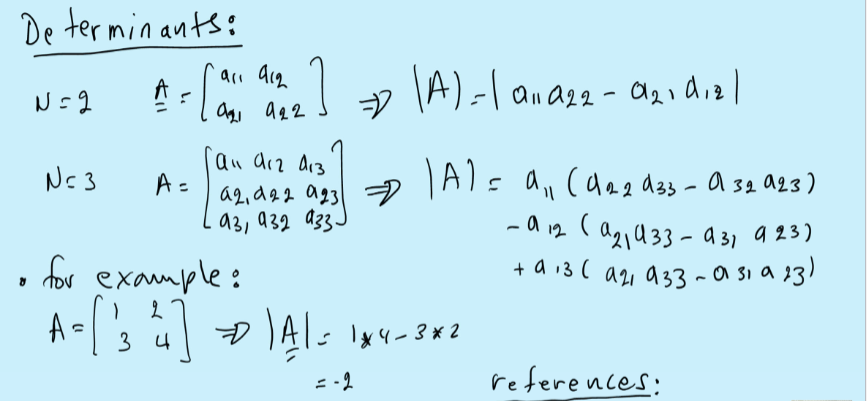 Determinants:
N=2 A = [a11 a12 a21 a22] ⇒ |A| = |a11 a22 - a21 a12|
N=3 A = [a11 a12 a13 a21 a22 a23 a31 a32 a33] ⇒ |A| = a11 (a22 a33 - a32 a23)
- a12 (a21 a33 - a31 a23)
+ a13 (a21 a33 - a31 a23)
• for example:
A = [1 2 3 4] ⇒ |A| = 1*4-3*2
= -2
references: